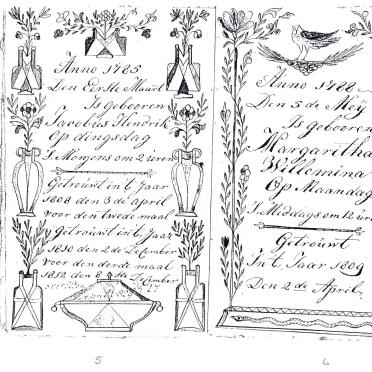 Anno 1785
Den Eerste Maart
Is gebooren
Jacobus Hendrik
Op dingsdag
S. Morgens om 2 uren
Getroüwt in't Jaar
1808 den 3 de april
voor den twede maal
Getroüwt in't Jaar
1810 den 2 de December
voor den derde maal
1812 den 6 December
5
Anno 1788
Den 5 de Meÿ
Is gebooren
Margaritha
Willemina
Op Maandag
S. Middags om 12 uren
Getroüwt
In't Jaar 1809
Den 2 de April
6